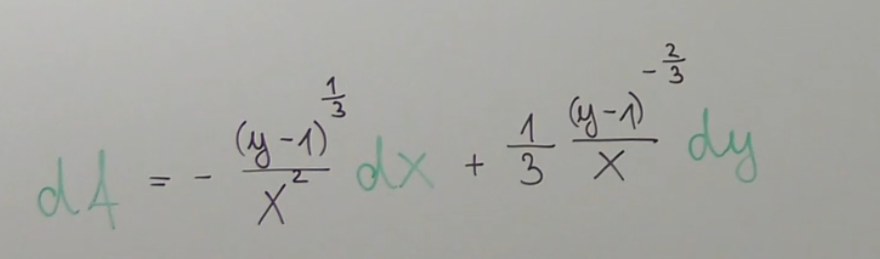 df = - \frac{(y-1)^{\frac{1}{3}}}{x^2} dx + \frac{1}{3} \frac{(y-1)^{-\frac{2}{3}}}{x} dy